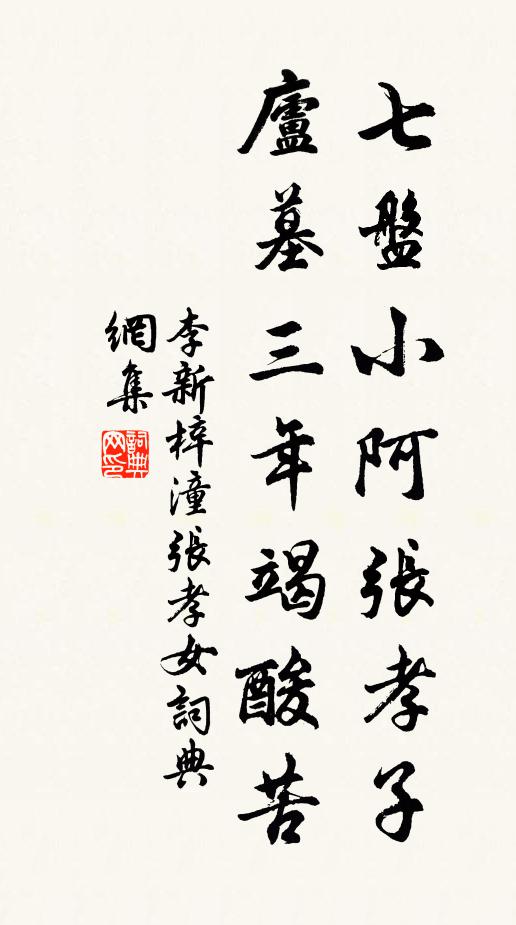 七盤小阿張孝子
廬墓三年竭酸苦
李新梓潼張孝女詞典
網集
詞典網印